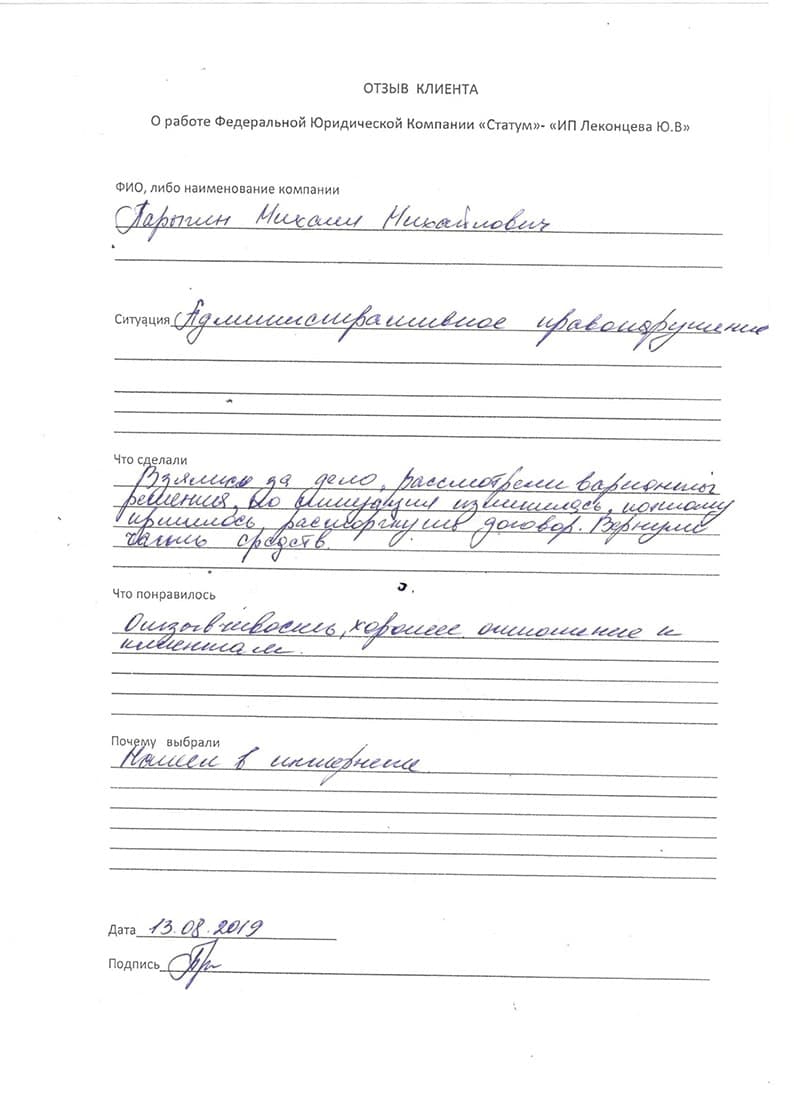 ОТЗЫВ КЛИЕНТА
О работе Федеральной Юридической Компании «Статум»- «ИП Леконцева Ю.В»
ФИО, либо наименование компании
Парыгин Михаил Михайлович
Ситуация Административное правонарушение
Что сделали
Взялись за дело, рассмотрели варианты
решения, но ситуация изменилась, поэтому
пришлось расторгнуть договор. Вернули
часть средств.
Что понравилось
Отзывчивость, хорошее отношение к
клиентам.
Почему выбрали
Нашел в интернете
Дата 13.08.2019
Подпись